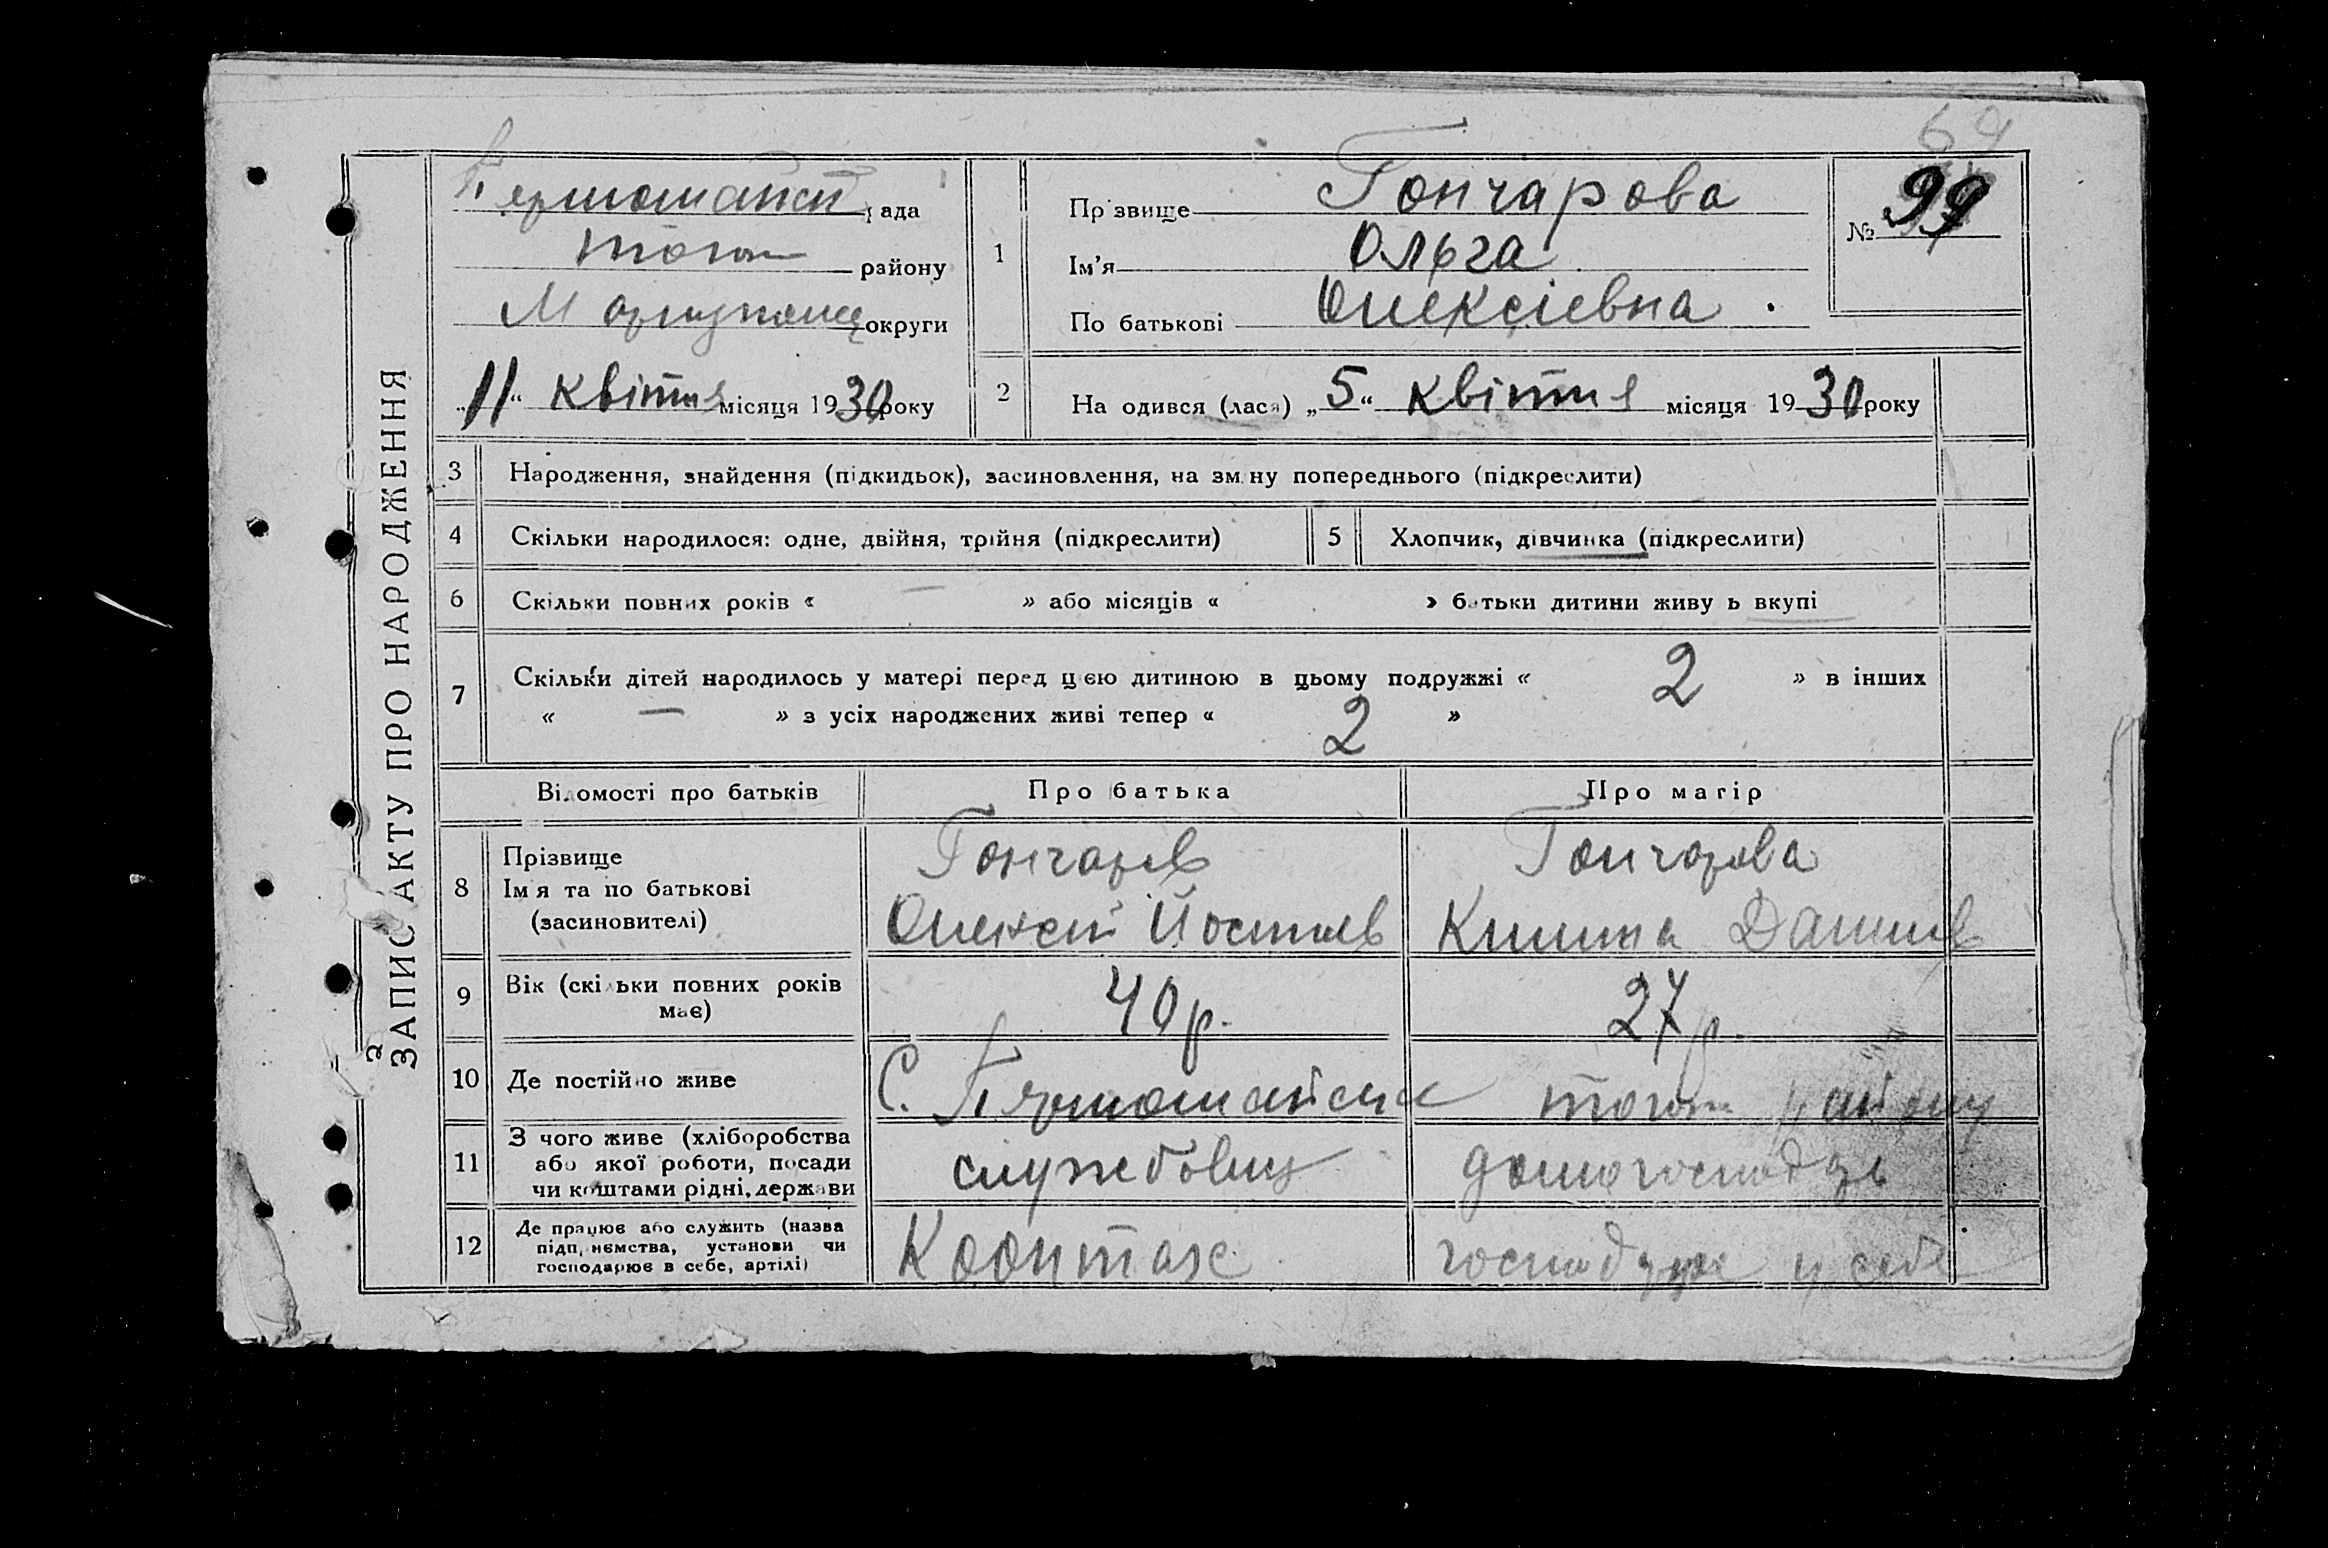 69
ЗАПИС АКТУ ПРО НАРОДЖЕННЯ
Першомайськ рада
того ж району
Маріупольщ округи
„11“ квітня місяця 1930 року
1
Прізвище Гончарова
Ім'я Ольга
По батькові Олексієвна
№ 99
2
Народився (лася) „5“ квітня місяця 1930 року
3 Народження, знайдення (підкидьок), засиновлення, на зміну попереднього (підкреслити)
4 Скільки народилося: одне, двійня, трійня (підкреслити)
5 Хлопчик, дівчинка (підкреслити)
6 Скільки повних років « — » або місяців « » батьки дитини живуть вкупі
7 Скільки дітей народилось у матері перед цією дитиною в цьому подружжі « 2 » в інших
« — » з усіх народжених живі тепер « 2 »
Відомості про батьків Про батька Про матір
8 Прізвище
Ім'я та по батькові
(засиновителі)
Гончаров
Олексій
Гончарова
Данилов
9 Вік (скільки повних років
має)
40 р.
27 р.
10 Де постійно живе
С. Першомайськ того ж району
11 З чого живе (хліборобства
або якої роботи, посади
чи коштами рідні, держави
службовець
домогосподарь
12 Де працює або служить (назва
підприємства, установи чи
господарює в себе, артілі)
господарює у себе